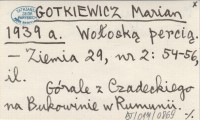 GOTKIEWICZ Marian
1939 a. Wołoską percią.
- Ziemia 29, nr 2: 54-56,
il.
Górale z Czadeckiego
na Bukowinie w Rumunii.